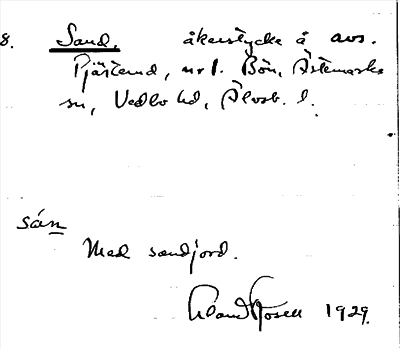 8. Sand, åkerstycke å avs.
Fjästerud, nr 1. Bön, Ärtemarks
sn, Vedbo hd, Älvsb. l.
sán
Med sandjord.
Rosell 1929.